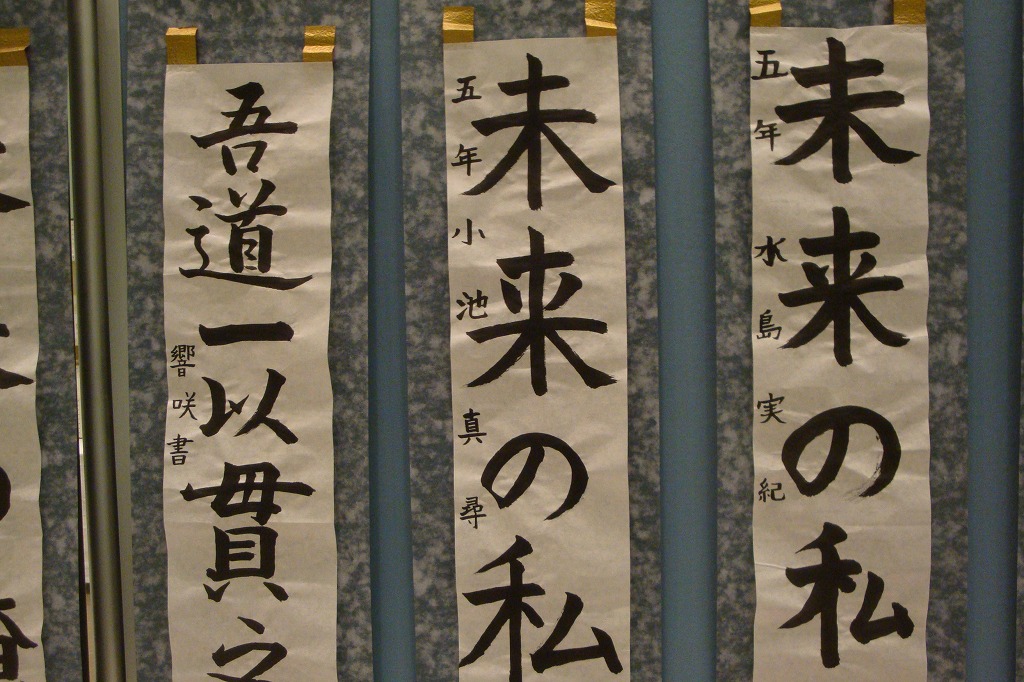 未来の私
五年 水島実紀
未来の私
五年 小池真尋
吾道一以貫之
響咲書